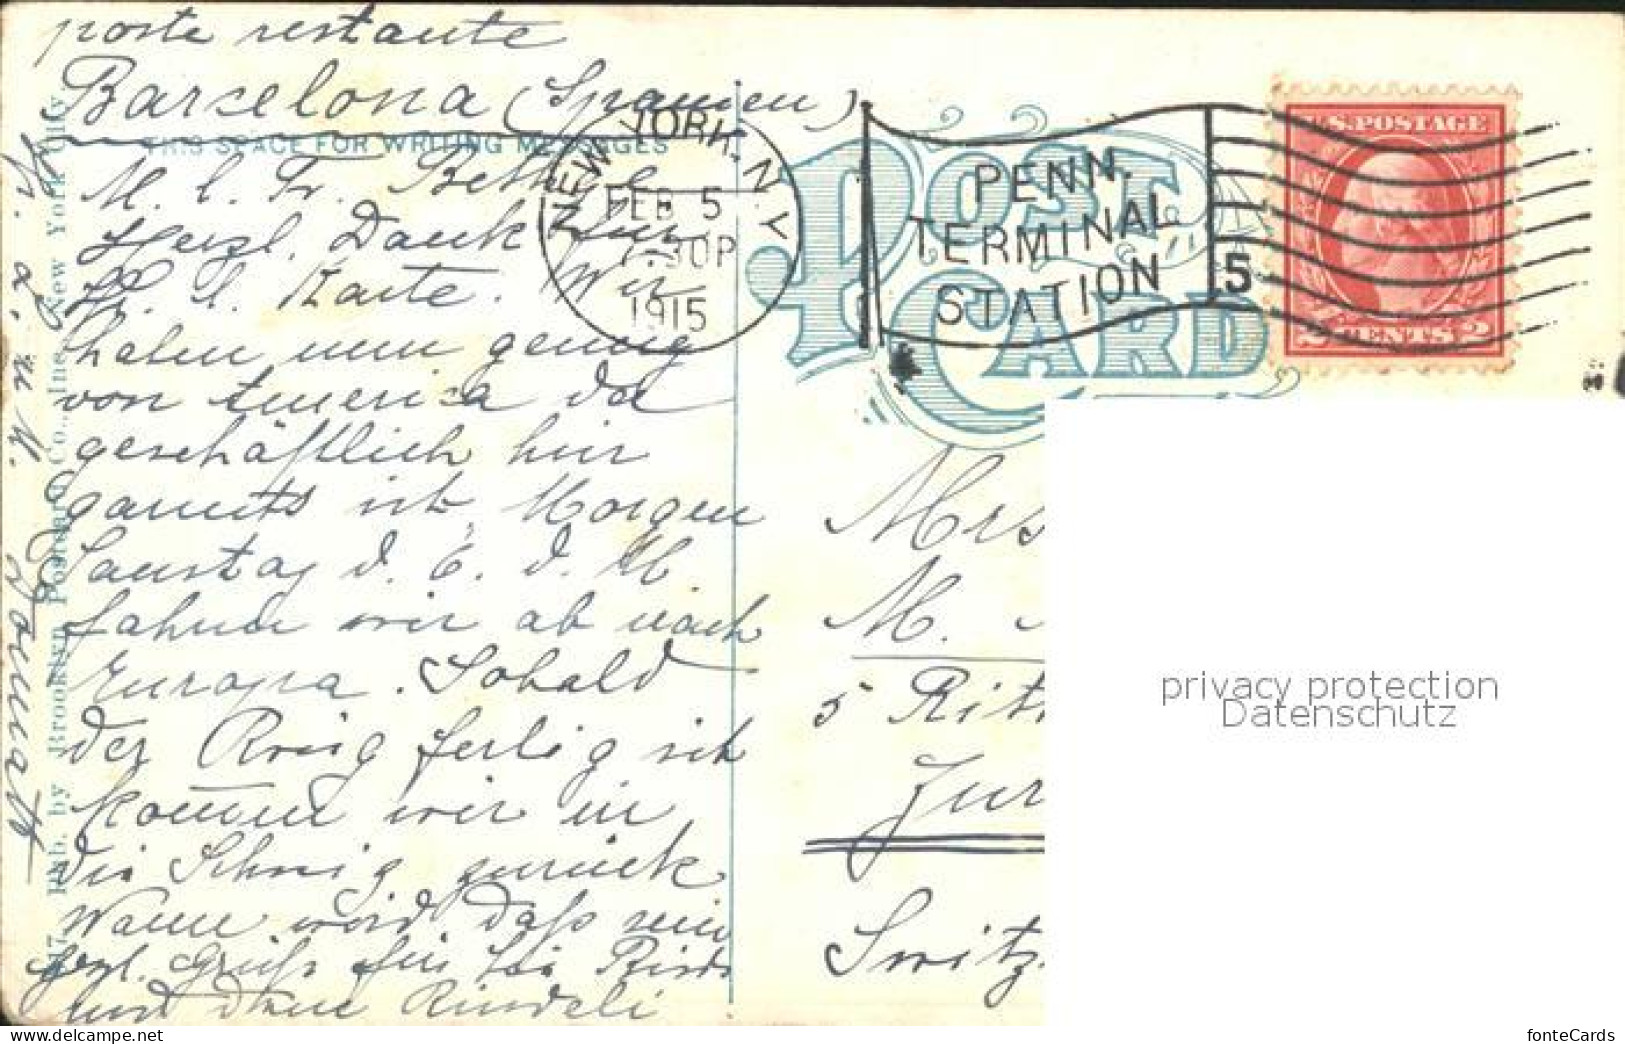 poste restante
Barcelona (Spanien)
THIS SPACE FOR WRITING MESSAGES
M. l. Fr.
Herzl. Dank für
Kr. l. Karte. Wir
haben nun genug
von Amerika da
geschäftlich hier
garnichts ist. Morgen
Samstag d. 6. d. M.
fahren wir ab nach
Europa. Sobald
der Krieg fertig ist
kommen wir in
die Schweiz zurück
Wann wird das sein
herzl. Grüße für Sie
und
NEW YORK, N.Y.
FEB 5
1915
PENN.
TERMINAL
STATION
5
POST CARD
U.S. POSTAGE
2 CENTS 2
Mrs
M.
5
Zur
Switz.
Pub. by Brooklyn Postcard Co., Inc., New York City.
privacy protection
Datenschutz
fonteCards